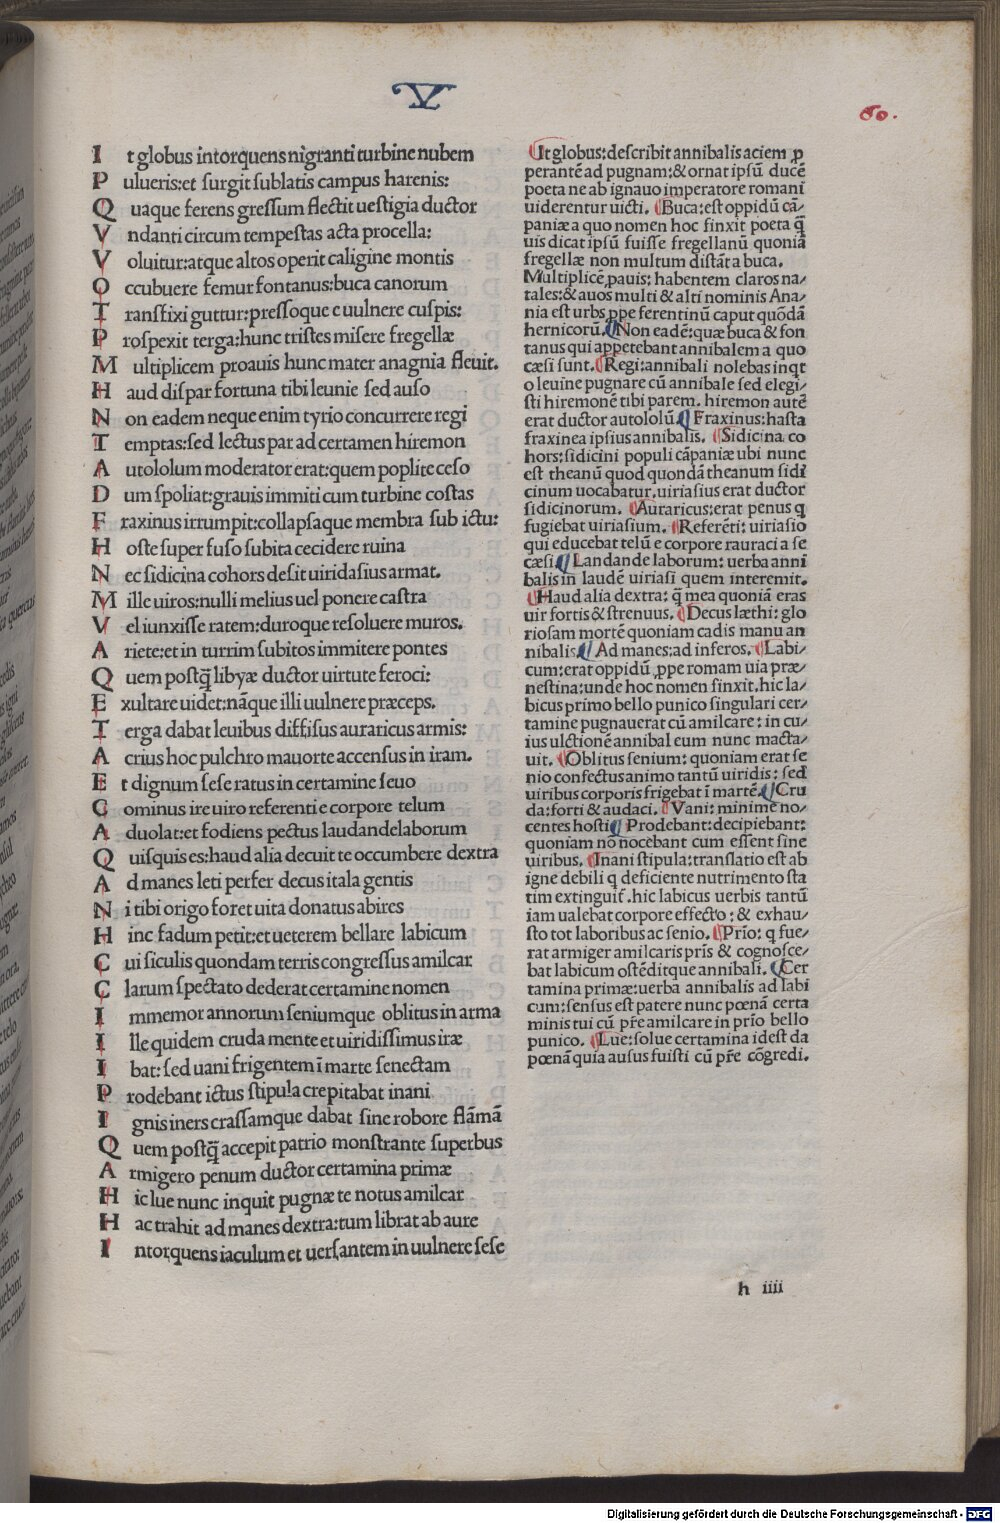 V
60.
I t globus intorquens nigranti turbine nubem
P ulueris:et surgit sublatis campus harenis:
Q uaque ferens gressum flectit uestigia ductor
V ndanti circum tempestas acta procella:
V oluitur:atque altos operit caligine montis
O ccubuere femur fontanus:buca canorum
T ransfixi guttur:pressoque e uulnere cuspis:
P rospexit terga:hunc tristes misere fregellæ
M ultiplicem proauis hunc mater anagnia fleuit.
H aud dispar fortuna tibi leuine sed auso
N on eadem neque enim tyrio concurrere regi
T emptas:sed lectus par ad certamen hiremon
A utololum moderator erat:quem poplite ceso
D um spoliat:grauis immiti cum turbine costas
F raxinus irrumpit:collapsaque membra sub ictu:
H oste super fuso subita cecidere ruina
N ec sidicina cohors desit uiridasius armat.
M ille uiros:nulli melius uel ponere castra
V el iunxisse ratem:duroque resoluere muros.
A riete:et in turrim subitos immitere pontes
Q uem postq̄ libyæ ductor uirtute feroci:
E xultare uidet:nãque illi uulnere præceps.
T erga dabat leuibus diffisus auraricus armis:
A crius hoc pulchro mauorte accensus in iram.
E t dignum sese ratus in certamine seuo
C ominus ire uiro referenti e corpore telum
A duolat:et fodiens pectus laudandelaborum
Q uisquis es:haud alia decuit te occumbere dextra
A d manes leti perfer decus itala gentis
N i tibi origo foret uita donatus abires
H inc fadum petit:et ueterem bellare labicum
C ui siculis quondam terris congressus amilcar
C larum spectato dederat certamine nomen
I mmemor annorum seniumque oblitus in arma
I lle quidem cruda mente et uiridissimus iræ
I bat: sed uani frigentem ĩ marte senectam
P rodebant ictus stipula crepitabat inani
I gnis iners crassamque dabat sine robore flãmã
Q uem postq̄ accepit patrio monstrante superbus
A rmigero penum ductor certamina primæ
H ic lue nunc inquit pugnæ te notus amilcar
H ac trahit ad manes dextra:tum librat ab aure
I ntorquens iaculum et uersantem in uulnere sese
It globus:describit annibalis aciem ꝓ
perantẽ ad pugnam:& ornat ipsũ ducẽ
poeta ne ab ignauo imperatore romani
uiderentur uicti. Buca:est oppidũ cã/
paniæ a quo nomen hoc finxit poeta q̃
uis dicat ipsũ fuisse fregellanũ quoniã
fregellæ non multum distãt a buca.
Multiplicẽ pauis: habentem claros na/
tales:& auos multi & alti nominis Ana/
nia est urbs ꝓpe ferentinũ caput quõdã
hernicorũ. Non eadẽ:quæ buca & fon
tanus qui appetebant annibalem a quo
cæsi sunt. Regi:annibali nolebas inqt
o leuine pugnare cũ annibale sed elegi/
sti hiremonẽ tibi parem. hiremon autẽ
erat ductor autololũ Fraxinus:hasta
fraxinea ipsius annibalis. Sidicina co
hors:sidicini populi cãpaniæ ubi nunc
est theanũ quod quondã theanum sidi
cinum uocabatur.uiriasius erat ductor
sidicinorum. Auraricus:erat penus q
fugiebat uiriasium. Referẽti: uiriasio
qui educebat telũ e corpore rauraci a se
cæsi. Landande laborum: uerba anni
balis in laudẽ uiriasi quem interemit.
Haud alia dextra: q̃ mea quoniã eras
uir fortis & strenuus. Decus læthi: glo
riosam mortẽ quoniam cadis manu an
nibalis. Ad manes:ad inferos. Labi/
cum:erat oppidũ ꝓpe romam uia præ/
nestina:unde hoc nomen finxit.hic la/
bicus primo bello punico singulari cer/
tamine pugnauerat cũ amilcare : in cu/
ius ulctionẽ annibal eum nunc macta/
uit. Oblitus senium: quoniam erat se
nio confectus animo tantũ uiridis: sed
uiribus corporis frigebat ĩ martẽ. Cru
da:forti & audaci. Vani: minime no/
centes hosti Prodebant:decipiebant:
quoniam nõ nocebant cum essent sine
uiribus. Inani stipula:translatio est ab
igne debili q deficiente nutrimento sta
tim extinguit̃ .hic labicus uerbis tantũ
iam ualebat corpore effecto : & exhau/
sto tot laboribus ac senio. Prio: q fue/
rat armiger amilcaris pr̃is & cognosce/
bat labicum ostẽditque annibali. Cer
tamina primæ:uerba annibalis ad labi
cum:sensus est patere nunc pœnã certa
minis tui cũ pr̃e amilcare in prio bello
punico. Lue:solue certamina idest da
pœnã quia ausus fuisti cũ pr̃e cõgredi.
h iiii
Digitalisierung gefördert durch die Deutsche Forschungsgemeinschaft - DFG